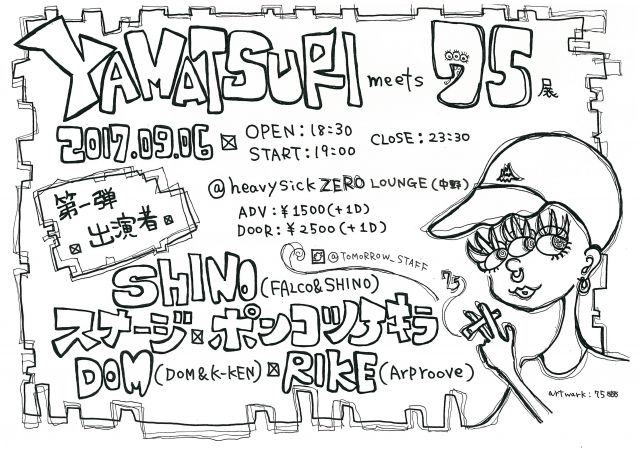 YAMATSURI meets 75 展
2017.09.06
OPEN:18:30
START:19:00
CLOSE:23:30
@heavysick ZERO LOUNGE(中野)
ADV:¥1500(+1D)
DOOR:¥2500(+1D)
第一弾
出演者
@TOMORROW_STAFF
75
SHINO(FALCO&SHINO)
スナージ ポンコツアキラ
DOM(DOM&K-KEN) RIKE(Arproove)
artwark:75